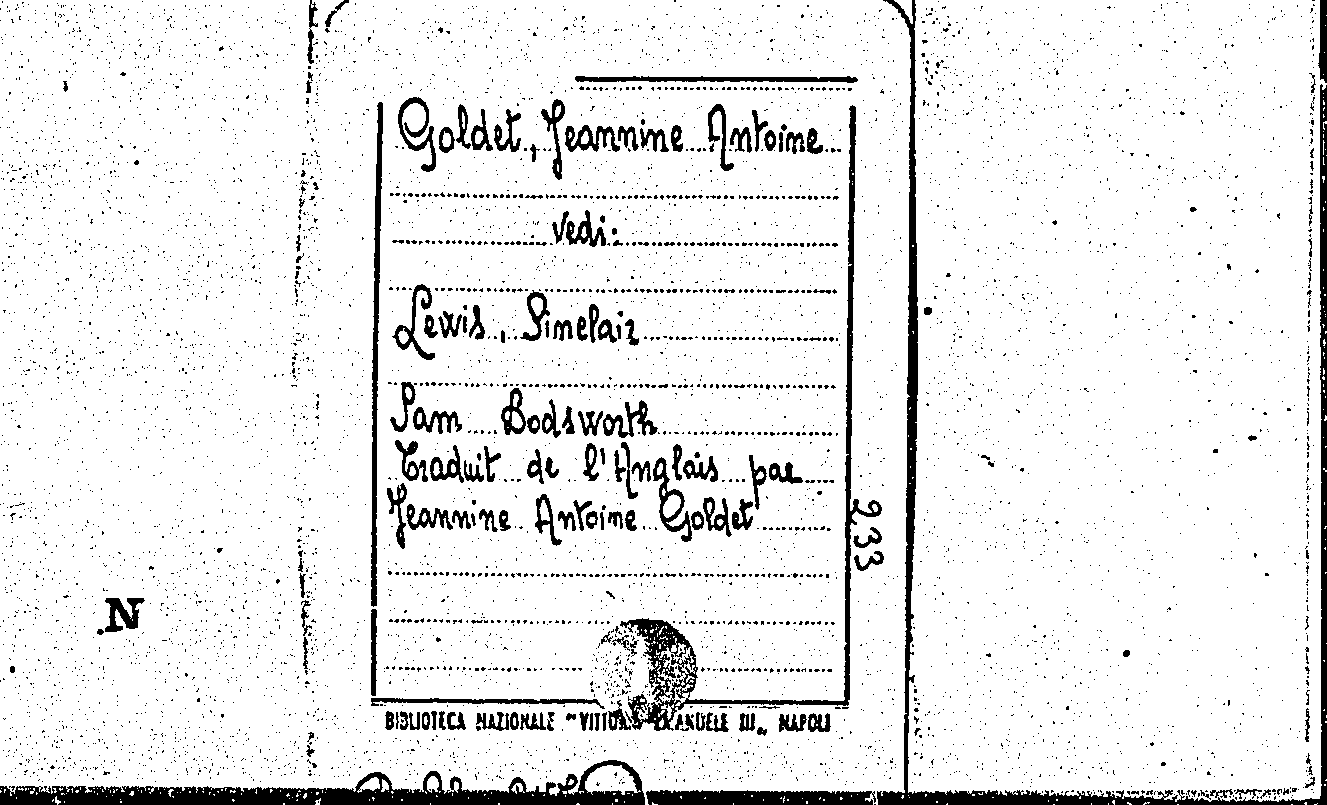 Goldet, Jeannine Antoine
vedi:
Lewis, Sinclair
Sam Bodsworth
Traduit de l'Anglais par
Jeannine Antoine Goldet
233
N
BIBLIOTECA NAZIONALE "VITTORIO EMANUELE III„ NAPOLI